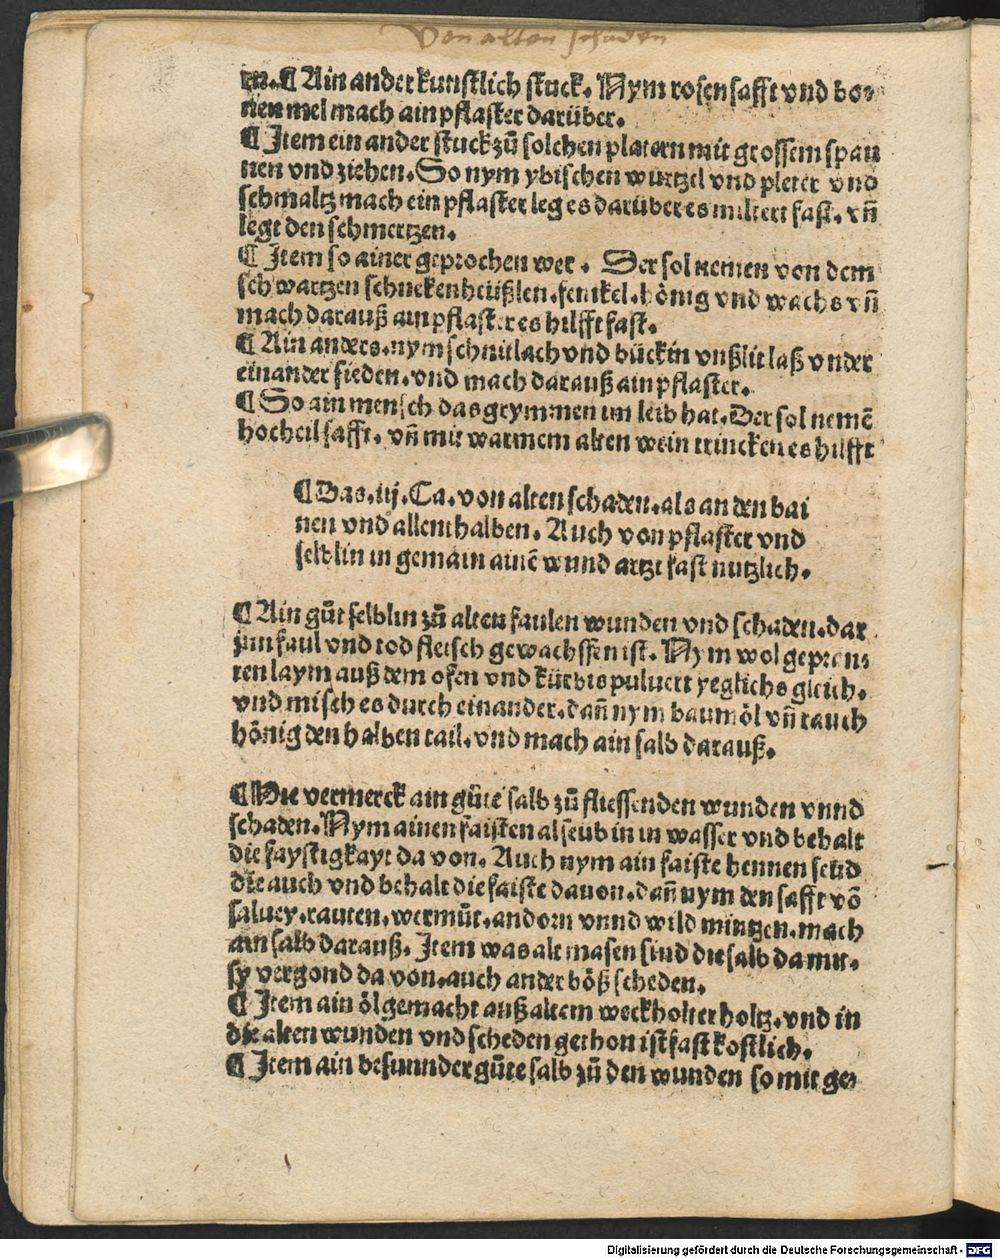 Von alten schaden
m. ¶ Ain ander kunstlich stuck. Nym rosen safft vnd bo⸗
nen mel mach ain pflaster darüber.
¶ Item ein ander stuck zů solchen platern mit grossem span
nen vnd ziehen. So nym ybischen wurtzel vnd pleter vnd
schmaltz mach ein pflaster leg es darüber es miltert fast. vñ
legt den schmertzen.
¶ Item so ainer geprochen wer. Der sol nemen von dem
schwartzen schneken heüßlen. fenikel. hönig vnd wachs vñ
mach darauß ain pflaster es hilfft fast.
¶ Ain anders. nym schnitlach vnd bückin vnßlit laß vnder
einander sieden. vnd mach darauß ain pflaster.
¶ So ain mensch das grymmen im leib hat. Der sol nemē
hocheil safft. vñ mit warmem alten wein trincken es hilfft
¶ Das. iij. Ca. von alten schaden. als an den bai
nen vnd allenthalben. Auch von pflaster vnd
selblin in gemain ainē wund artzt fast nutzlich.
¶ Ain gůt selblin zů alten faulen wunden vnd schaden. dar
jnn faul vnd tod fleisch gewachssen ist. Nym wol geprens
ten laym auß dem ofen vnd kürbis puluert yeglichs gleich.
vnd misch es durch einander. dañ nym baumöl vñ rauch
hönig den halben tail. vnd mach ain salb darauß.
¶ Hie vermerck ain gůte salb zů fliessenden wunden vnnd
schaden. Nym ainen faisten al seud in in wasser vnd behalt
die faystigkayt da von. Auch nym ain faiste hennen seud
die auch vnd behalt die faiste dauon. dañ nym den safft vō
saluey. rauten. wermůt. andorn vnnd wild mintzen. mach
ain salb darauß. Item was alt masen sind die salb da mit.
sy vergond da von. auch ander böß scheden.
¶ Item ain öl gemacht auß altem weckholter holtz. vnd in
die alten wunden vnd scheden gethon ist fast kostlich.
¶ Item ain besunnder gůte salb zů den wunden so mit ge⸗
Digitalisierung gefördert durch die Deutsche Forschungsgemeinschaft - DFG